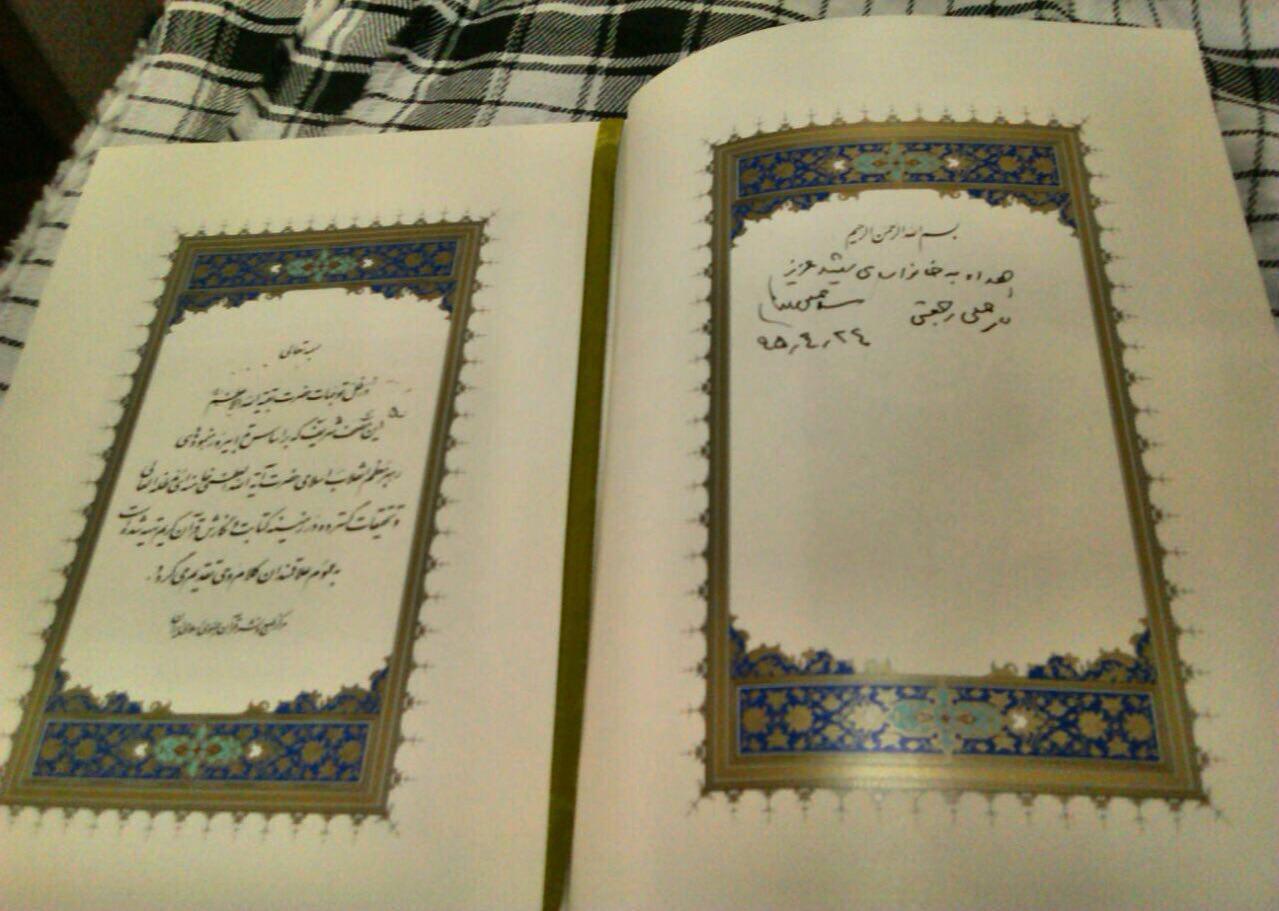 بسم الله الرحمن الرحیم
اهداء به خانواده‌ی شهید عزیز
رجبعلی
۹۵٫۴٫۲۴
بسمه تعالی
در ظل توجهات حضرت بقیة الله الاعظم
این مصحف شریف که بر اساس تدابیر و رهنمودهای
رهبر معظم انقلاب اسلامی حضرت آیة الله العظمی خامنه‌ای مدظله العالی
و تحقیقات گسترده در زمینه کتابت و نگارش قرآن کریم تهیه شده است
به عموم علاقمندان کلام وحی تقدیم می گردد.
مرکز طبع و نشر قرآن جمهوری اسلامی ایران